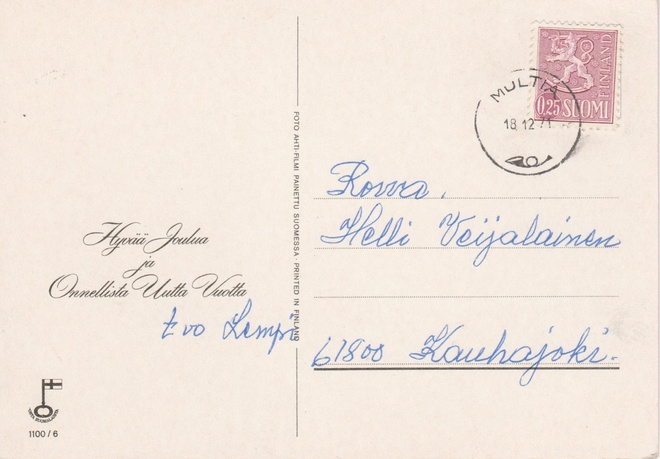 MULTIA
18.12.71
FINLAND
0,25 SUOMI
FOTO AHTI-FILMI PAINETTU SUOMESSA · PRINTED IN FINLAND
Rouva.
Helli Veijalainen
61800 Kauhajoki.
Hyvää Joulua
ja
Onnellista Uutta Vuotta
Lempi
1100/6